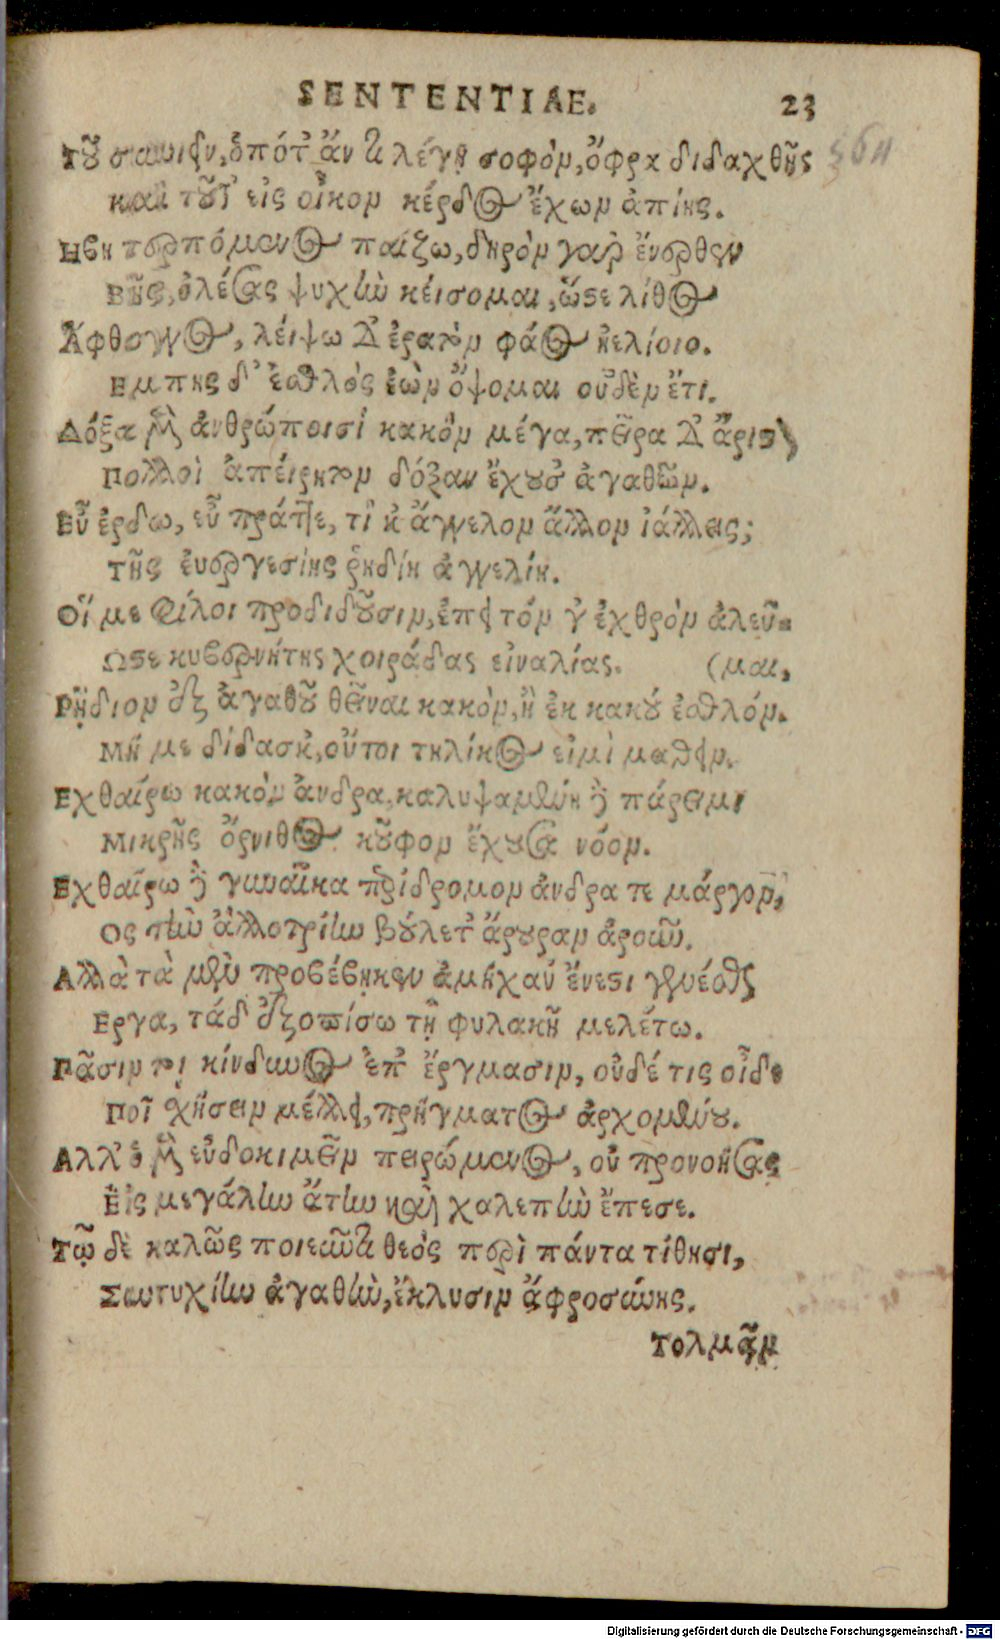 SENTENTIAE. 23
Τοῦ συνιεῖν, ὁπότ' ἄν τι λέγῃ σοφὸν, ὄφρα διδαχθῇς
καὶ τοῦτ' εἰς οἶκον κέρδος ἔχων ἀπίῃς.
Ηβῃ τερπόμενος παίζω, δηρὸν γὰρ ἔνερθεν
Βῆς, ὀλέσας ψυχὴν κείσομαι, ὥστε λίθος
Ἄφθογγος, λείψω δ' ἐρατὸν φάος ἠελίοιο.
Εμπης δ' ἐσθλὸς ἐὼν ὄψομαι οὐδὲν ἔτι.
Δόξα μὲν ἀνθρώποισι κακὸν μέγα, πεῖρα δ' ἄριστον
Πολλοὶ ἀπείρητον δόξαν ἔχουσ' ἀγαθῶν.
Εὖ ἔρδων, εὖ πράττε, τί κ' ἄγγελον ἄλλον ἰάλλεις;
τῆς εὐεργεσίης ῥηδίη ἀγγελίη.
Οἵ με φίλοι προδιδοῦσιν, ἐπεὶ τόν γ' ἐχθρὸν ἀλεῦ-
Ωστε κυβερνήτης χοιράδας εἰναλίας. (μαι,
Ρῄδιον ἐξ ἀγαθοῦ θεῖναι κακὸν, ἢ ἐκ κακοῦ ἐσθλόν.
Μή με δίδασκ', οὔτοι τηλίκος εἰμὶ μαθεῖν.
Εχθαίρω κακὸν ἄνδρα, καλυψαμένη δὲ πάρειμι
Μικρῆς ὄρνιθος κοῦφον ἔχουσα νόον.
Εχθαίρω δὲ γυναῖκα περίδρομον ἄνδρα τε μάργον,
Ος τὴν ἀλλοτρίην βούλετ' ἄρουραν ἀροῦν.
Αλλὰ τὰ μὲν προβέβηκεν ἀμήχανόν ἔνεστι γενέσθαι
Εργα, τάδ' ἐξοπίσω τῇ φυλακῇ μελέτω.
Πᾶσιν τοι κίνδυνος ἐπ' ἔργμασιν, οὐδέ τις οἶδε
Ποῖ σχήσειν μέλλει, πρήγματος ἀρχομένου.
Αλλ' ὁ μὲν εὐδοκιμεῖν πειρώμενος, οὐ προνοήσας
Εἰς μεγάλην ἄτην καὶ χαλεπὴν ἔπεσε.
Τῷ δὲ καλῶς ποιεῦντι θεὸς περὶ πάντα τίθησι,
Συντυχίην ἀγαθὴν, ἔκλυσιν ἀφροσύνης.
Τολμᾷν
Digitalisierung gefördert durch die Deutsche Forschungsgemeinschaft - DFG